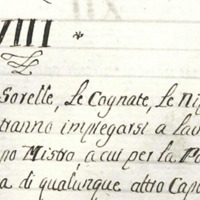 VIII *
Sorelle, Le Cognate, Le Ni
tranno impiegarsi a lau
po Mistro, a cui per la
a di qualunque altro Cap